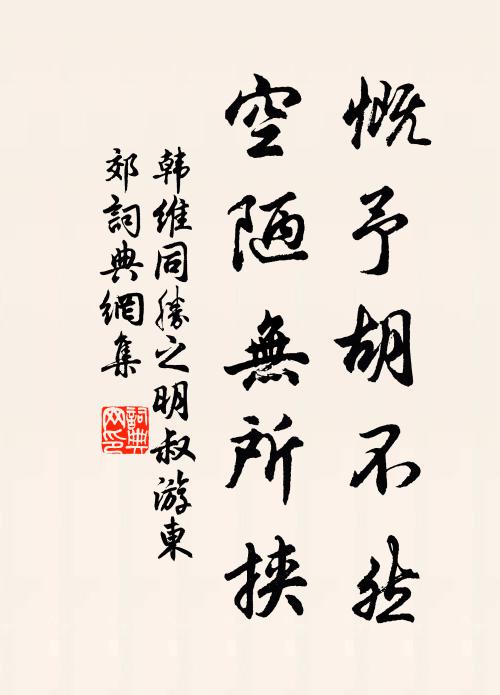 慨予胡不然
空陋無所挟
韩维同勝之明叔游東
郊詞典網集
詞典网印